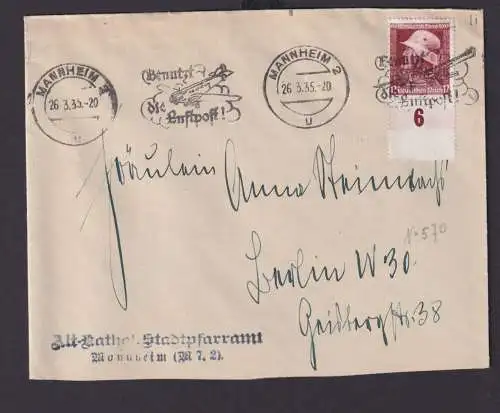 MANNHEIM 2
26.3.35.-20
u
Benutzt
die
Luftpost!
MANNHEIM 2
26.3.35.-20
u
Benutzt
die
Luftpost!
12 Deutsches Reich 12
6
Fräulein Anna Steimbach
No 570
Berlin W 30.
Geisbergstr. 38
Alt-Kathol. Stadtpfarramt
Mannheim (M 7, 2).